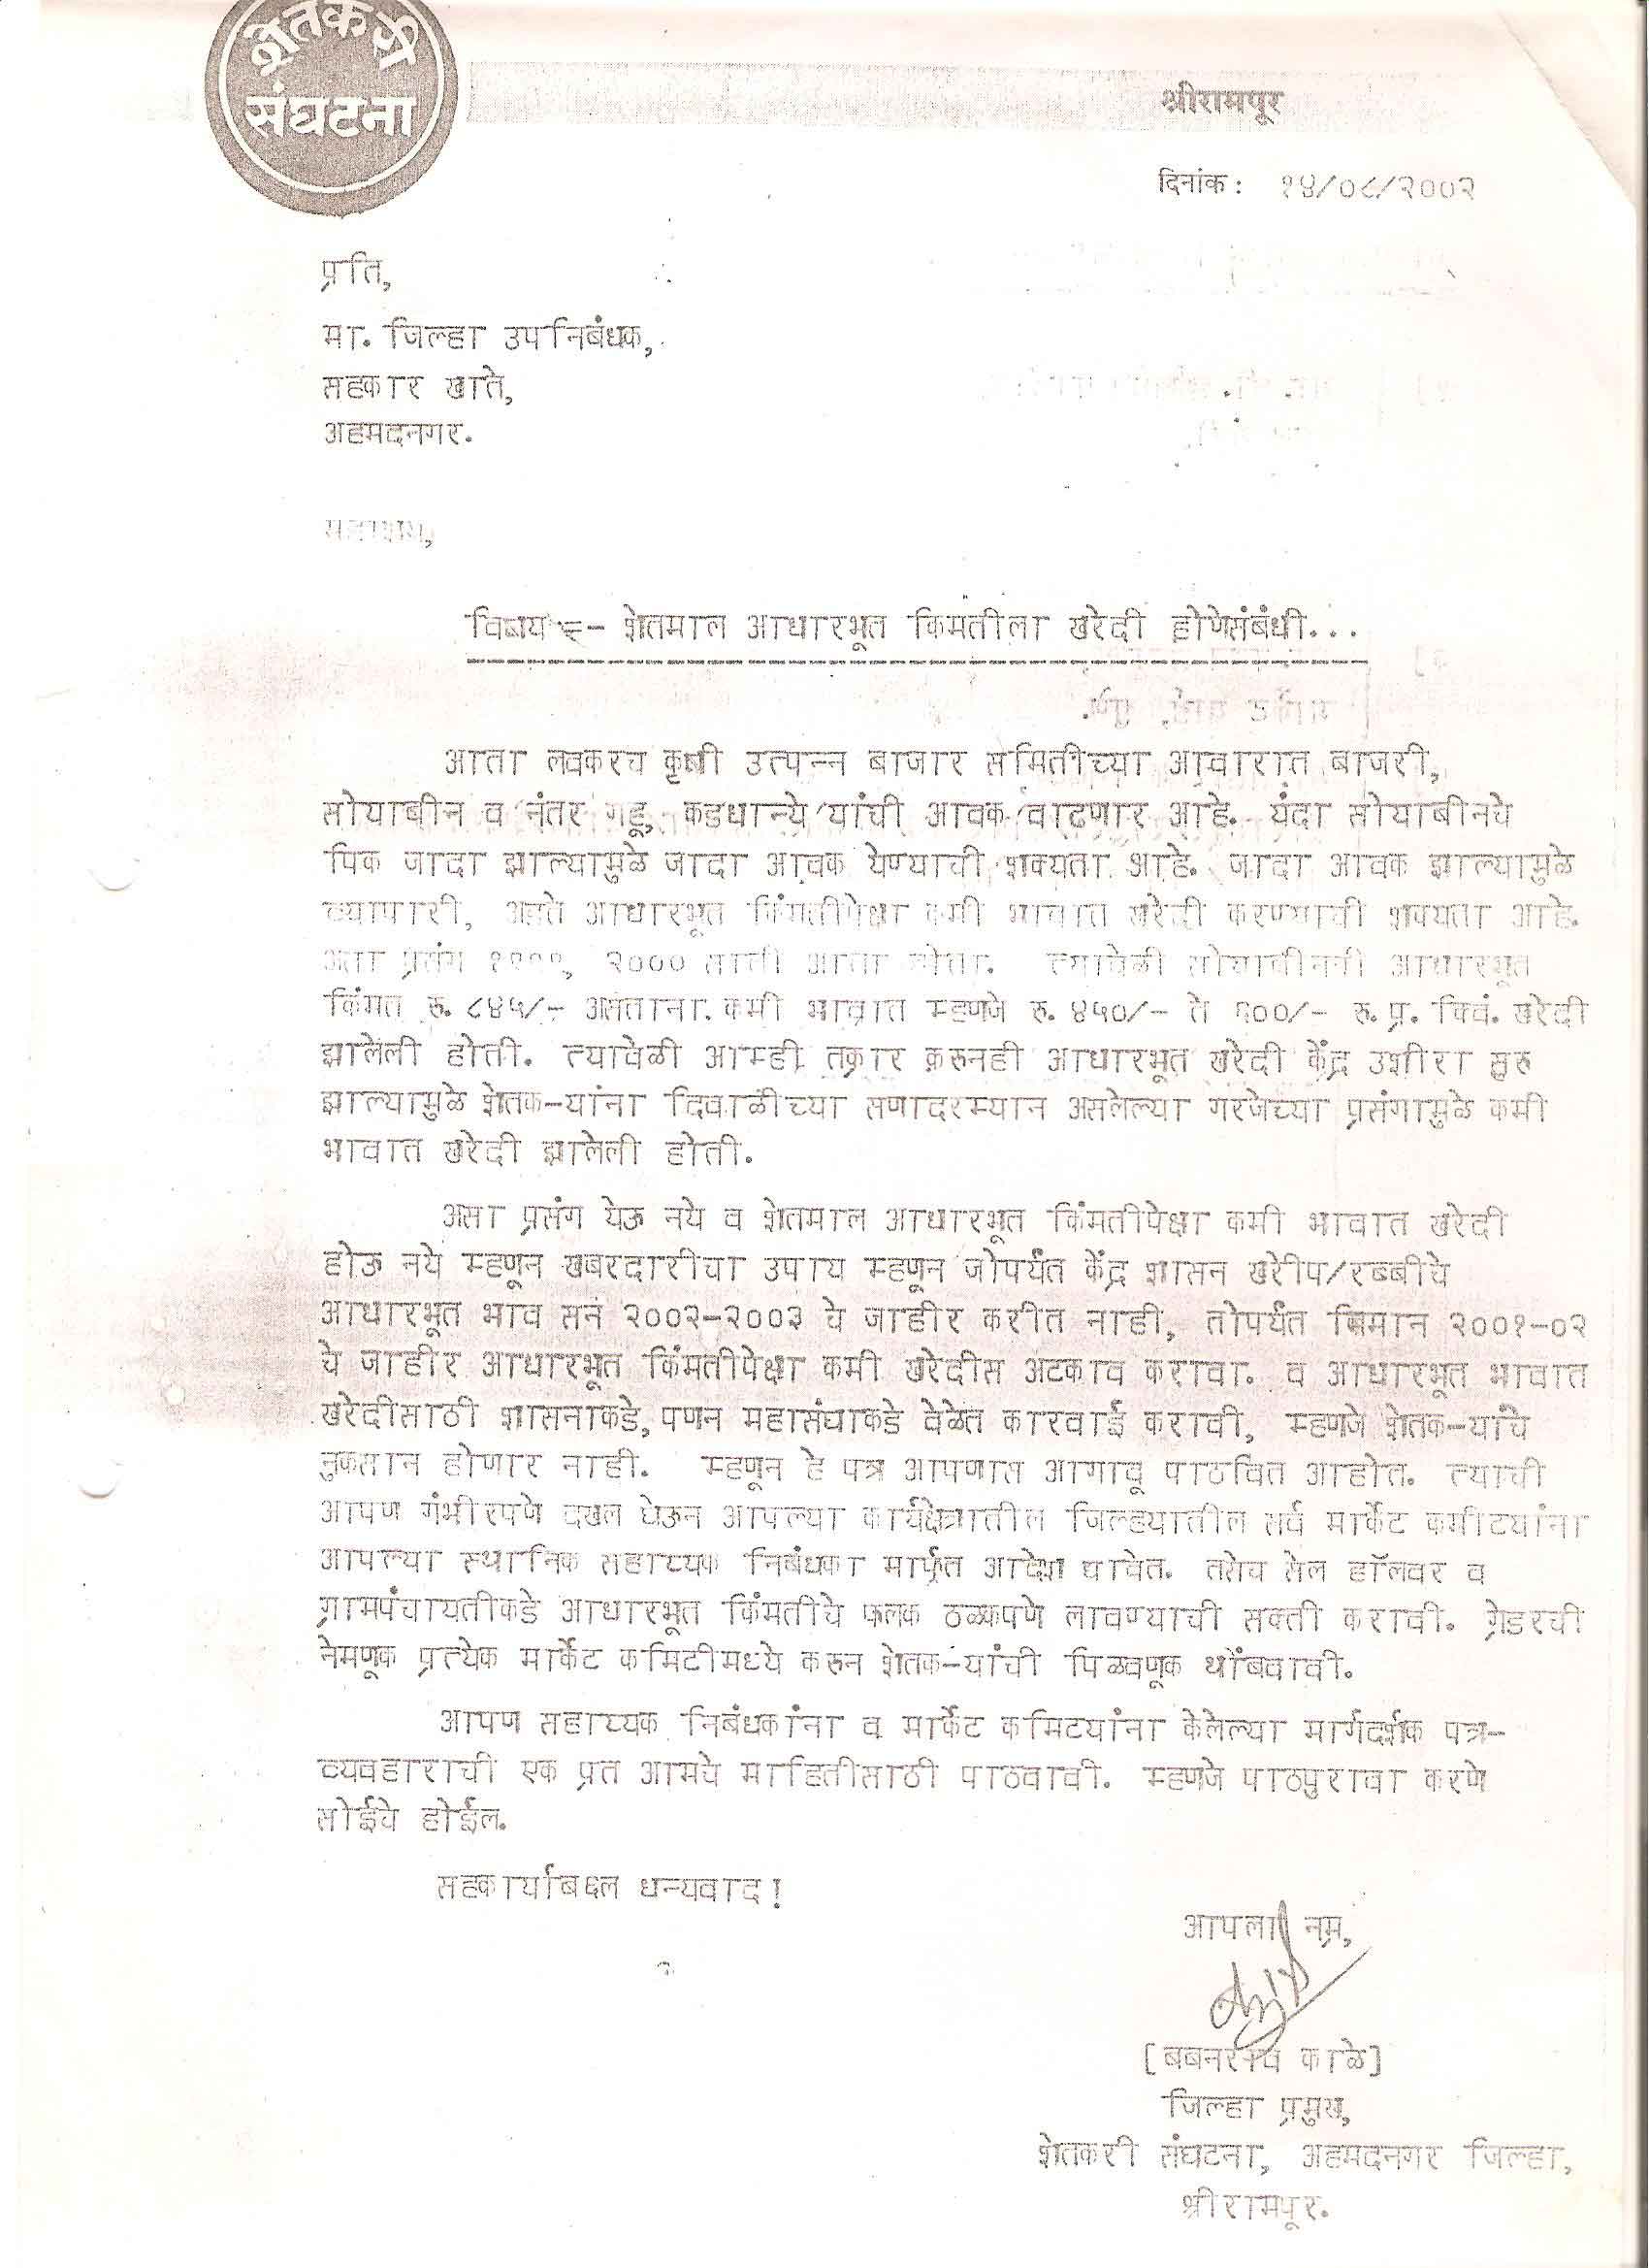 शेतकरी
संघटना
श्रीरामपूर
दिनांक : १४/०८/२००२
प्रति,
मा. जिल्हा उपनिबंधक,
सहकार खाते,
अहमदनगर.
महाशय,
विषय :- शेतमाल आधारभूत किमतीला खरेदी होणेसंबंधी...
आता लवकरच कृषी उत्पन्न बाजार समितीच्या आवारात बाजरी,
सोयाबीन व नंतर गहू, कडधान्ये यांची आवक वाढणार आहे. यंदा सोयाबीनचे
पिक जादा झाल्यामुळे जादा आवक येण्याची शक्यता आहे. जादा आवक झाल्यामुळे
व्यापारी, अडते आधारभूत किंमतीपेक्षा कमी भावात खरेदी करण्याची शक्यता आहे.
असा प्रसंग १९९९, २००० साली आला होता. त्यावेळी सोयाबीनची आधारभूत
किंमत रु. ८४५/- असताना कमी भावात म्हणजे रु. ४५०/- ते ६००/- रु. प्र. क्विं. खरेदी
झालेली होती. त्यावेळी आम्ही तक्रार करुनही आधारभूत खरेदी केंद्र उशीरा सुरु
झाल्यामुळे शेतक-यांना दिवाळीच्या सणादरम्यान असलेल्या गरजेच्या प्रसंगामुळे कमी
भावात खरेदी झालेली होती.
असा प्रसंग येऊ नये व शेतमाल आधारभूत किंमतीपेक्षा कमी भावात खरेदी
होऊ नये म्हणून खबरदारीचा उपाय म्हणून जोपर्यंत केंद्र शासन खरीप/रब्बीचे
आधारभूत भाव सन २००२-२००३ चे जाहीर करीत नाही, तोपर्यंत किमान २००१-०२
चे जाहीर आधारभूत किंमतीपेक्षा कमी खरेदीस अटकाव करावा. व आधारभूत भावात
खरेदीसाठी शासनाकडे, पणन महासंघाकडे वेळेत कारवाई करावी, म्हणजे शेतक-यांचे
नुकसान होणार नाही. म्हणून हे पत्र आपणास आगावू पाठवित आहोत. त्याची
आपण गंभीरपणे दखल घेऊन आपल्या कार्यक्षेत्रातील जिल्हयातील सर्व मार्केट कमीटयांना
आपल्या स्थानिक सहाय्यक निबंधका मार्फत आदेश द्यावेत. तसेच सेल हॉलवर व
ग्रामपंचायतीकडे आधारभूत किंमतीचे फलक ठळकपणे लावण्याची सक्ती करावी. ग्रेडरची
नेमणूक प्रत्येक मार्केट कमिटीमध्ये करुन शेतक-यांची पिळवणूक थांबवावी.
आपण सहाय्यक निबंधकांना व मार्केट कमिटयांना केलेल्या मार्गदर्शक पत्र-
व्यवहाराची एक प्रत आमचे माहितीसाठी पाठवावी. म्हणजे पाठपुरावा करणे
सोईचे होईल.
सहकार्याबद्दल धन्यवाद!
आपला नम्र,
[बबनराव काळे]
जिल्हा प्रमुख,
शेतकरी संघटना, अहमदनगर जिल्हा,
श्रीरामपूर.